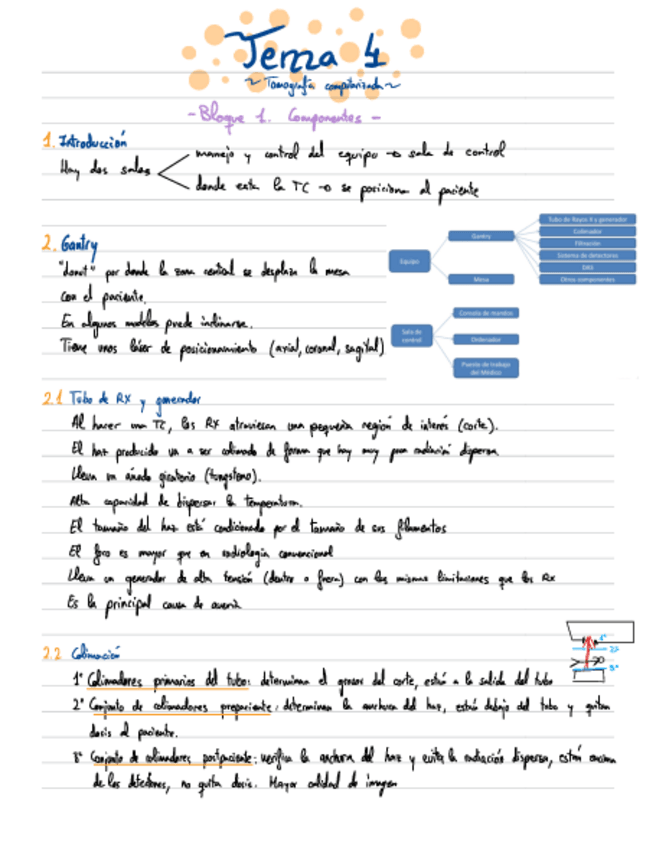 Tema 4
~ Tomografía computarizada ~
- Bloque 1. Componentes -
1. Introducción
Hay dos salas
manejo y control del equipo → sala de control
donde esta la TC → se posiciona al paciente
2. Gantry
"donut" por donde la zona central se desplaza la mesa
con el paciente.
En algunos modelos puede inclinarse.
Tiene unos láser de posicionamiento (axial, coronal, sagital)
Equipo
Gantry
Mesa
Tubo de Rayos X y generador
Colimador
Filtración
Sistema de detectores
DAS
Otros componentes
Sala de control
Consola de mandos
Ordenador
Puesto de trabajo
del Médico
2.1 Tubo de RX y generador
Al hacer una TC, los RX atraviesan una pequeña región de interés (corte).
El haz producido va a ser colimado de forma que hay muy poca radiación dispersa
Lleva un ánodo giratorio (tungsteno).
Alta capacidad de dispersar la temperatura.
El tamaño del haz está condicionado por el tamaño de sus filamentos
El foco es mayor que en radiología convencional
Lleva un generador de alta tensión (dentro o fuera) con las mismas limitaciones que los Rx
Es la principal causa de avería
2.2 Colimación
1º
2º
3º
1º Colimadores primarios del tubo: determinan el grosor del corte, están a la salida del tubo
2º Conjunto de colimadores prepaciente: determinan la anchura del haz, están debajo del tubo y quitan
dosis al paciente.
3º Conjunto de colimadores postpaciente: verifica la anchura del haz y evita la radiación dispersa, están encima
de los detectores, no quita dosis. Mayor calidad de imagen